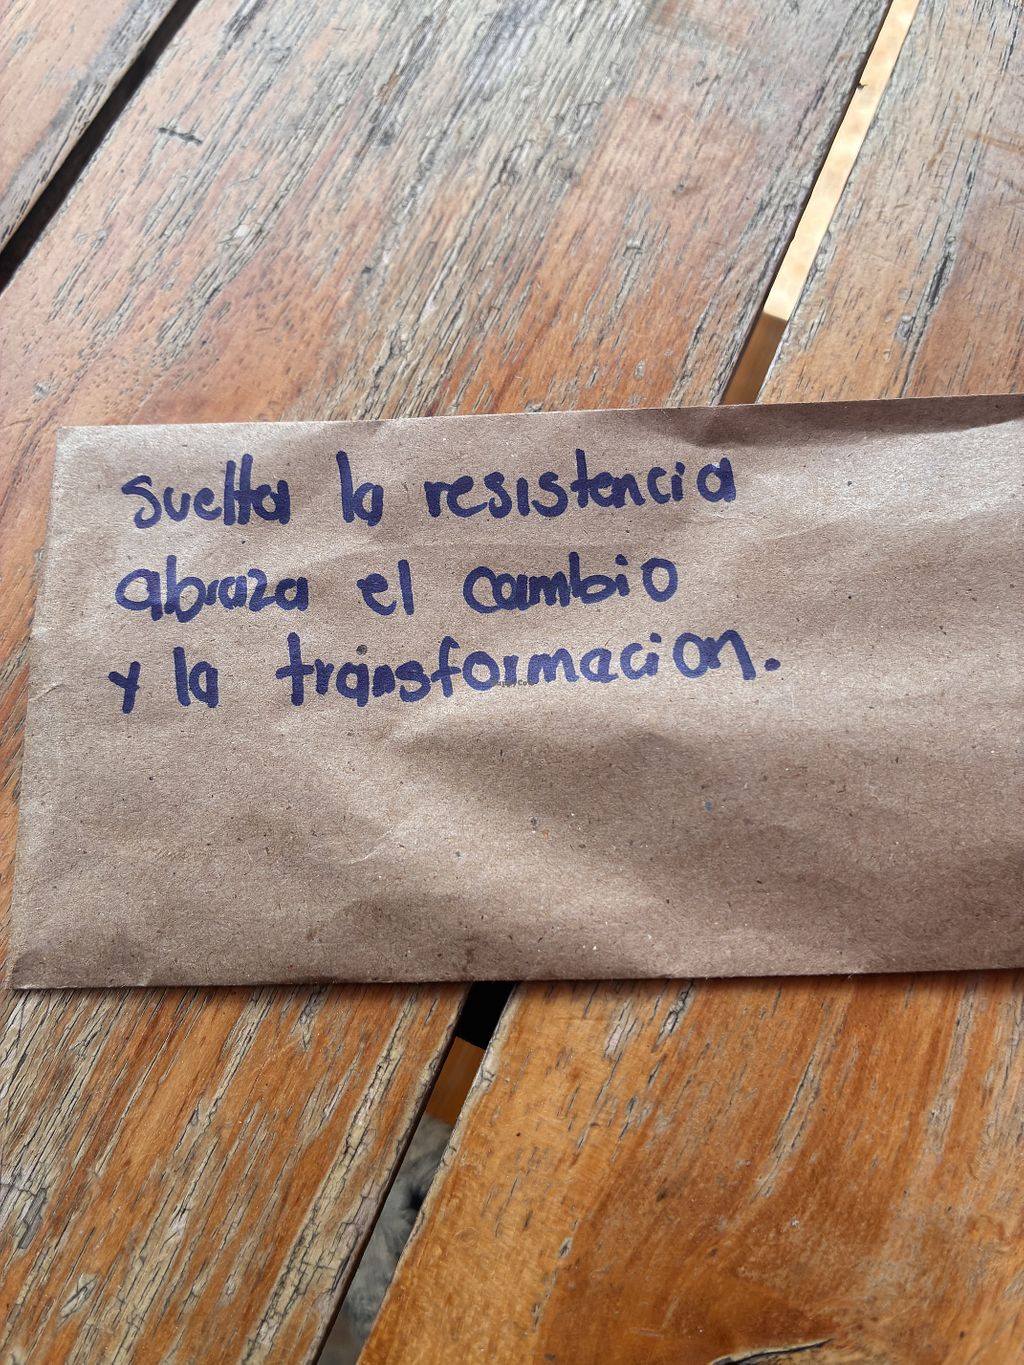 suelta la resistencia
abraza el cambio
y la transformacion.